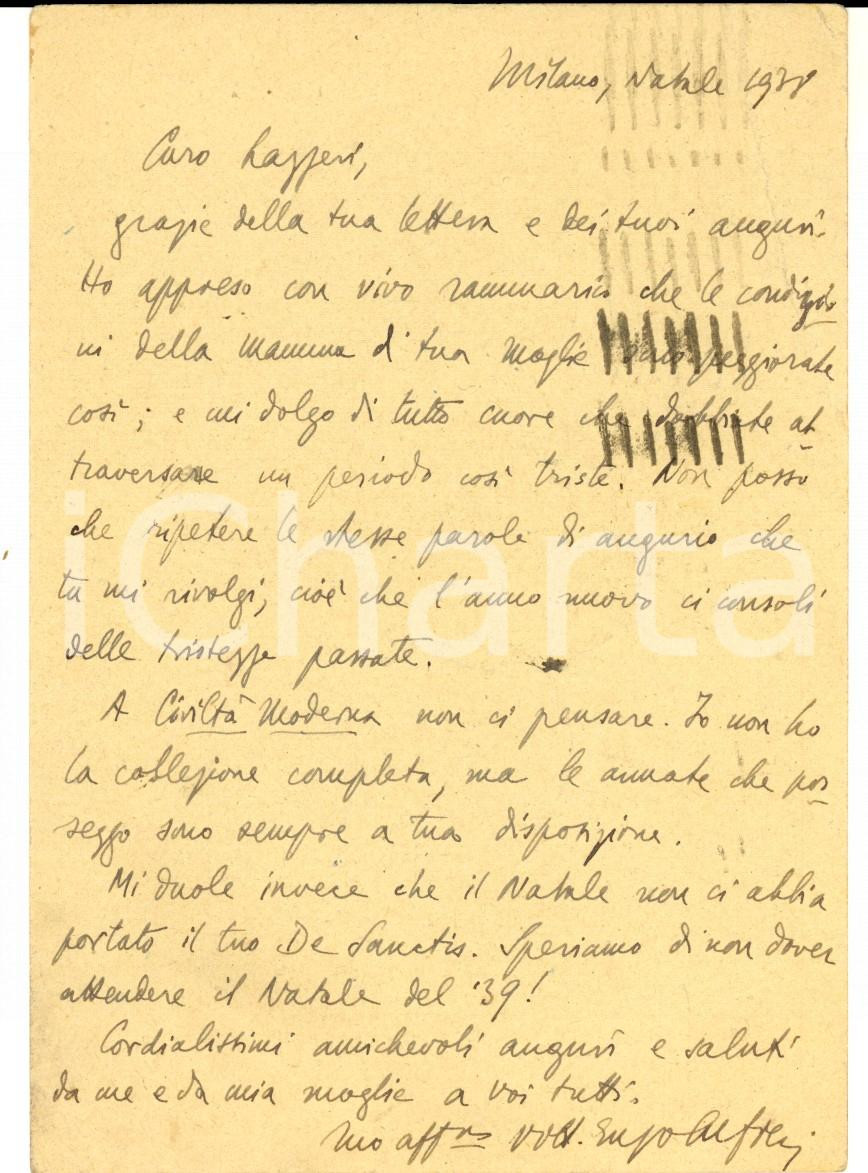 Milano, Natale 1938
Caro Lazzeri,
grazie della tua lettera e dei tuoi auguri.
Ho appreso con vivo rammarico che le condizio
ni della mamma di tua moglie sono peggiorate
così; e mi dolgo di tutto cuore che dobbiate at
traversare un periodo così triste. Non posso
che ripetere le stesse parole di augurio che
tu mi rivolgi, cioè che l'anno nuovo ci consoli
delle tristezze passate.
A Civiltà Moderna non ci pensare. Io non ho
la collezione completa, ma le annate che pos
seggo sono sempre a tua disposizione.
Mi duole invece che il Natale non ci abbia
portato il tuo De Sanctis. Speriamo di non dover
attendere il Natale del '39!
Cordialissimi amichevoli auguri e saluti
da me e da mia moglie a voi tutti.
tuo aff.mo Vitt. Enzo Alfieri
iCharta